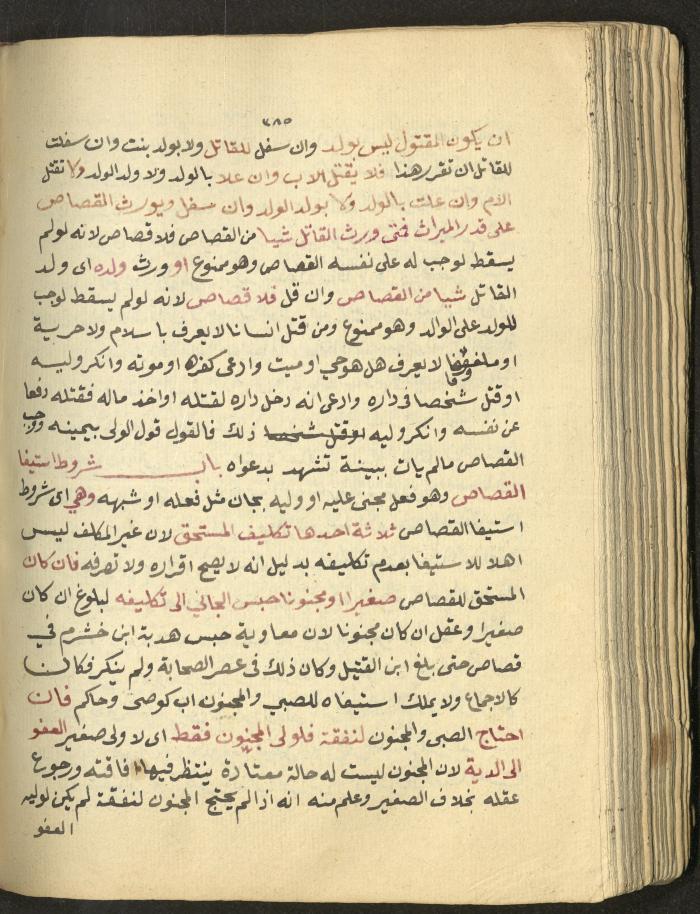 ٣٨٥
ان يكون المقتول ليس بولد وان سفل للقاتل ولا بولد بنت وان سفلت
للقاتل ان تقرر هذا فلا يقتل الاب وان علا بالولد ولا ولد الولد ولا تقتل
الام وان علت بالولد ولا بولد الولد وان سفل ويورث القصاص
على قدر الميراث فمتى ورث القاتل شيا من القصاص فلا قصاص لانه لو لم
يسقط لوجب له على نفسه القصاص وهو ممنوع او ورث ولده اى ولد
القاتل شيا من القصاص وان قل فلا قصاص لانه لو لم يسقط لوجب
للولد على الوالد وهو ممنوع ومن قتل انسانا لا يعرف باسلام ولا حرية
او ملفوفا لا يعرف هل هو حي او ميت وادعى كفره او موته وانكر وليه
او قتل شخصا فى داره وادعى انه دخل داره لقتله او اخذ ماله فقتله دفعا
عن نفسه وانكر وليه او قتل شخصا ذلك فالقول قول الولى بيمينه ووجب
القصاص مالم يات ببينة تشهد بدعواه باب شروط استيفا
القصاص وهو فعل مجنى عليه او وليه بجان مثل فعله او شبهه وهي اى شروط
استيفا القصاص ثلاثة احدها تكليف المستحق لان غير المكلف ليس
اهلا للاستيفا بعدم تكليفه بدليل انه لا يصح اقراره ولا تصرفه فان كان
المستحق للقصاص صغيرا او مجنونا حبس الجاني الى تكليفه لبلوغ ان كان
صغيرا وعقل ان كان مجنونا لان معاوية حبس هدبة ابن خشرم في
قصاص حتى بلغ ابن القتيل وكان ذلك فى عصر الصحابة ولم ينكر فكان
كالاجماع ولا يملك استيفاه للصبي والمجنون اب كوصى وحاكم فان
احتاج الصبى والمجنون لنفقة فلولى المجنون فقط اى لا ولى صغير العفو
الى الدية لان المجنون ليست له حالة معتادة ينتظر فيها افاقته ورجوع
عقله بخلاف الصغير وعلم منه انه اذا لم يحتج المجنون لنفقة لم يكن لوليه
العفو